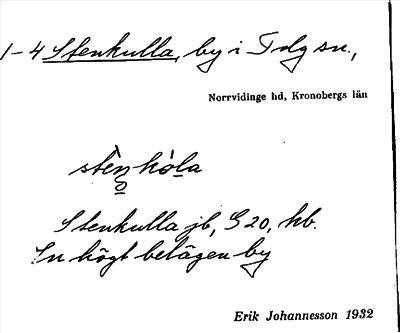 1-4 Stenkulla, by i Tdg sn.,
Norrvidinge hd, Kronobergs län
stèn kòla
Stenkulla jb, G 20, hb.
En högt belägen by
Erik Johannesson 1932